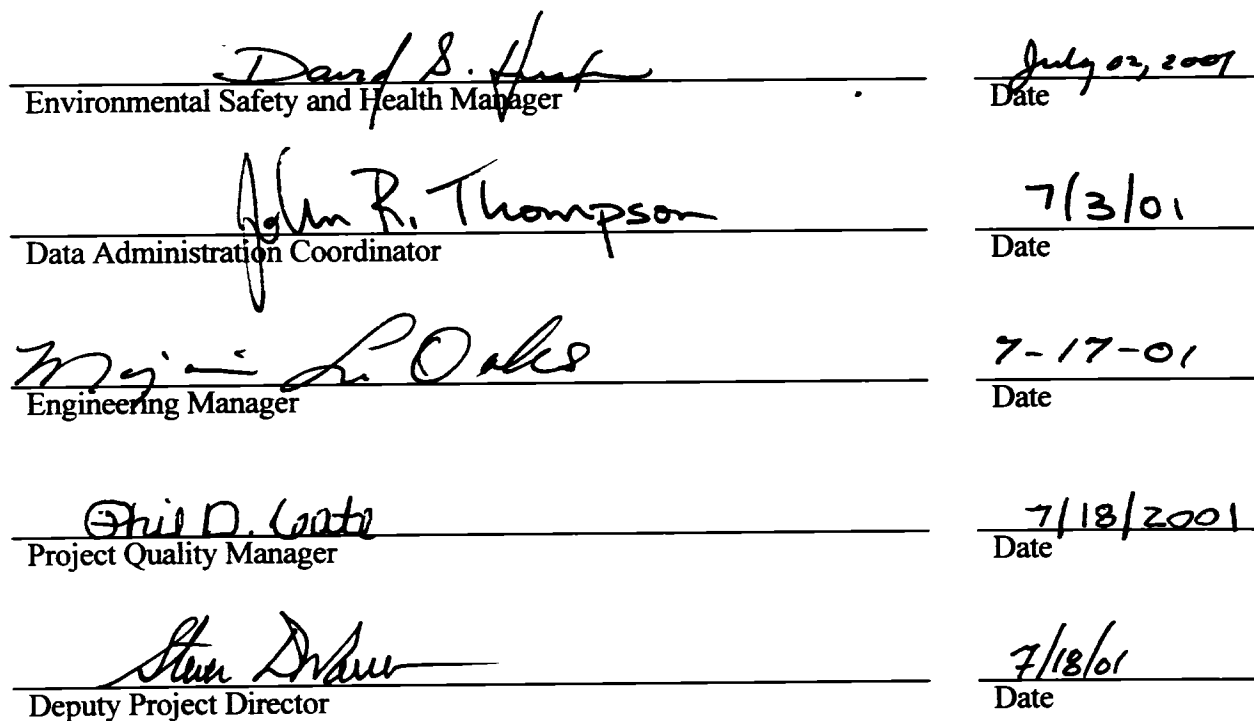 David S. July 02, 2001
Environmental Safety and Health Manager Date
John R. Thompson 7/3/01
Data Administration Coordinator Date
L. Oaks 7-17-01
Engineering Manager Date
Phil D. Coate 7/18/2001
Project Quality Manager Date
Steven 7/18/01
Deputy Project Director Date